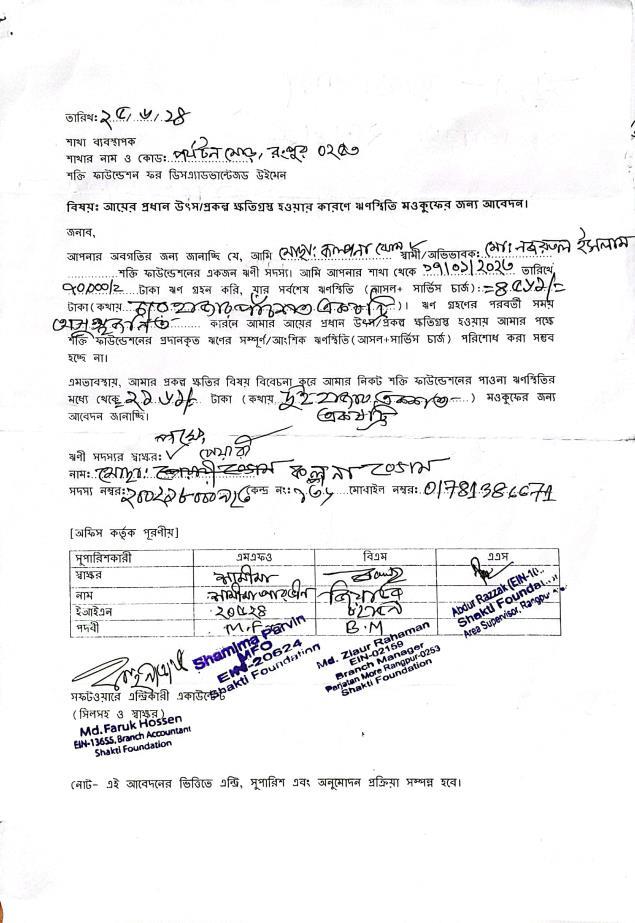 তারিখ: ২৫/৬/২৪
শাখা ব্যবস্থাপক
শাখার নাম ও কোড: পর্যটন মোড়, রংপুর ০২৫৩
শক্তি ফাউন্ডেশন ফর ডিসএ্যাডভান্টেজড উইমেন
বিষয়: আয়ের প্রধান উৎস/প্রকল্প ক্ষতিগ্রস্থ হওয়ার কারণে ঋণস্থিতি মওকুফের জন্য আবেদন।
জনাব,
আপনার অবগতির জন্য জানাচ্ছি যে, আমি মোছা: কল্পনা বেগম স্বামী/অভিভাবক: মো: নজরুল ইসলাম
শক্তি ফাউন্ডেশনের একজন ঋণী সদস্য। আমি আপনার শাখা থেকে তারিখে
টাকা ঋণ গ্রহন করি, যার সর্বশেষ ঋণস্থিতি (আসল+ সার্ভিস চার্জ) : =৪৫৬১/=
টাকা (কথায় চার হাজার পাঁচশত একষট্টি)। ঋণ গ্রহণের পরবর্তী সময়
অসুস্থজনিত কারনে আমার আয়ের প্রধান উৎস/প্রকল্প ক্ষতিগ্রস্ত হওয়ায় আমার পক্ষে
শক্তি ফাউন্ডেশনের প্রদানকৃত ঋণের সম্পূর্ণ/আংশিক ঋণস্থিতি (আসল+সার্ভিস চার্জ) পরিশোধ করা সম্ভব
হচ্ছে না।
এমতাবস্থায়, আমার প্রকল্প ক্ষতির বিষয় বিবেচনা করে আমার নিকট শক্তি ফাউন্ডেশনের পাওনা ঋণস্থিতির
মধ্যে থেকে ২১৬১/= টাকা (কথায় দুই হাজার একশত একষট্টি) মওকুফের জন্য
আবেদন জানাচ্ছি।
ঋণী সদস্যর স্বাক্ষর:
নাম: মোছা: কল্পনা বেগম
সদস্য নম্বর: কেন্দ্র নং: মোবাইল নম্বর: 01781386671
[অফিস কর্তৃক পূরণীয়]
সুপারিশকারী এমএফও বিএম এএস
স্বাক্ষর শামীমা
নাম শামীমা পারভীন জিয়াউর
ইআইএন ২০৬২৪
পদবী M.F.O B.M
Shamima Parvin
MFO
EIN-20624
Shakti Foundation
Md. Ziaur Rahaman
EIN-02159
Branch Manager
Parjatan More Rangpur-0253
Shakti Foundation
Abdur Razzak (EIN-10
Shakti Foundation
Area Supervisor, Rangpur
সফটওয়ারে এন্ট্রিকারী একাউন্টেন্ট
(সিলসহ ও স্বাক্ষর)
Md. Faruk Hossen
EIN-13655, Branch Accountant
Shakti Foundation
নোট- এই আবেদনের ভিত্তিতে এন্ট্রি, সুপারিশ এবং অনুমোদন প্রক্রিয়া সম্পন্ন হবে।